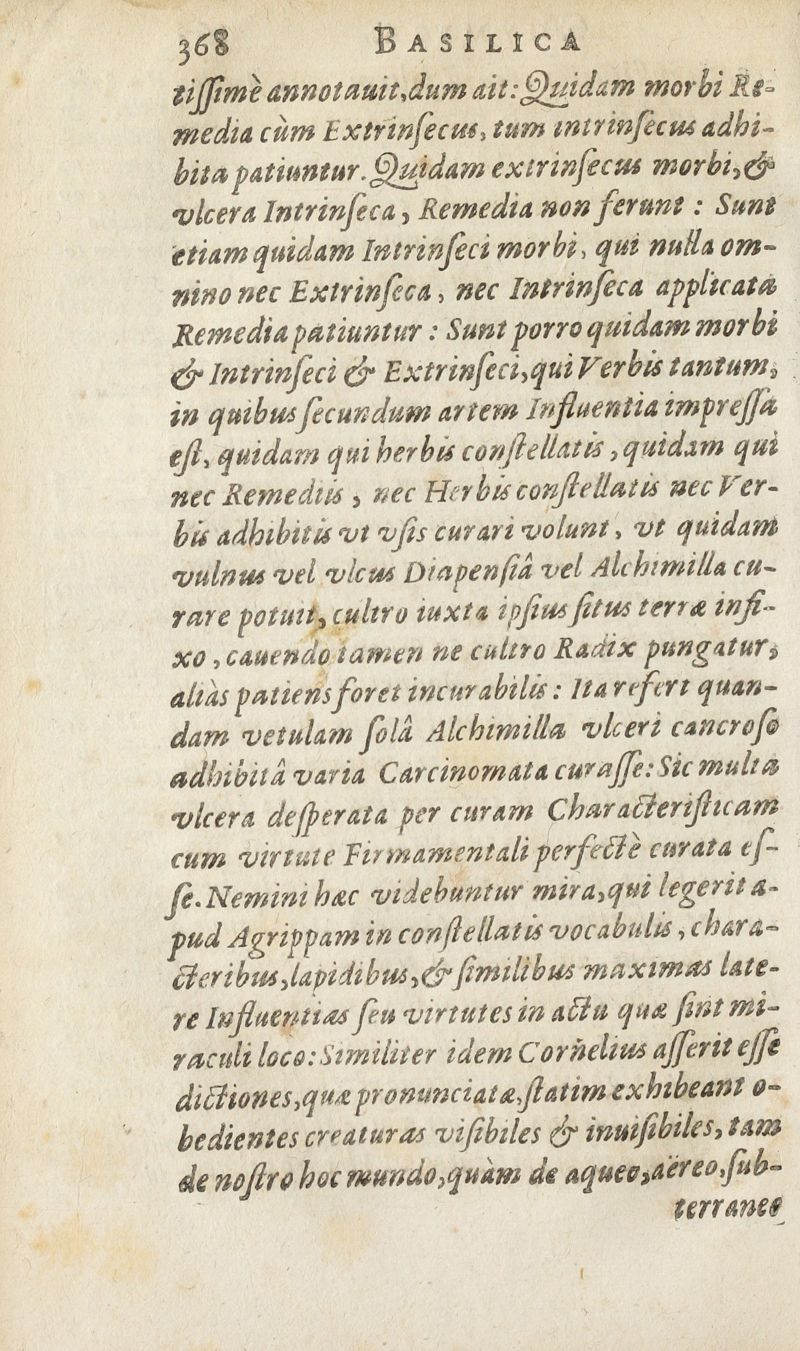 368 BASILICA
tiſſimè annotauit, dum ait: Quidam morbi Re-
media cùm Extrinſecus, tum intrinſecus adhi-
bita patiuntur. Quidam extrinſecus morbi, &
vlcera Intrinſeca, Remedia non ferunt: Sunt
etiam quidam Intrinſeci morbi, qui nulla om-
nino nec Extrinſeca, nec Intrinſeca applicata
Remedia patiuntur: Sunt porro quidam morbi
& Intrinſeci & Extrinſeci, qui Verbis tantum,
in quibus ſecundum artem Influentia impreſſa
eſt, quidam qui herbis conſtellatis, quidam qui
nec Remediis, nec Herbis conſtellatis nec Ver-
bis adhibitis vt vſis curari volunt, vt quidam
vulnus vel vlcus Diapenſiâ vel Alchimilla cu-
rare potuit, cultro iuxta ipſius ſitus terræ infi-
xo, cauendo tamen ne cultro Radix pungatur,
aliàs patiens foret incurabilis: Ita refert quan-
dam vetulam ſolâ Alchimilla vlceri cancroſo
adhibitâ varia Carcinomata curaſſe: Sic multa
vlcera deſperata per curam Characteriſticam
cum virtute Firmamentali perfectè curata eſ-
ſe. Nemini hæc videbuntur mira, qui legerit a-
pud Agrippam in conſtellatis vocabulis, chara-
cteribus, lapidibus, & ſimilibus maximas late-
re Influentias ſeu virtutes in actu quæ ſint mi-
raculi loco: Similiter idem Corñelius aſſerit eſſe
dictiones, quæ pronunciatæ, ſtatim exhibeant o-
bedientes creaturas viſibiles & inuiſibiles, tam
de noſtro hoc mundo, quàm de aqueo, aëreo, ſub-
terraneo